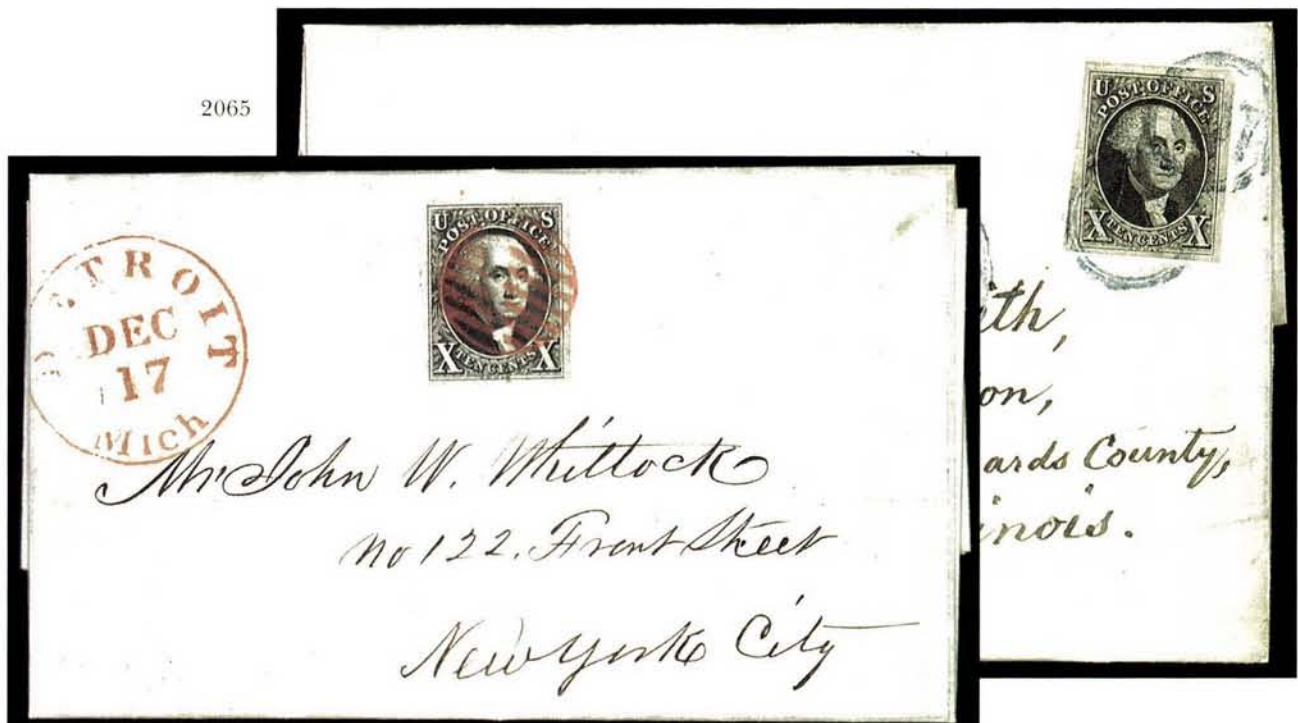 2065
U S
POST OFFICE
X TEN CENTS X
ith,
on,
ards County,
inois.
DETROIT
DEC
17
Mich
U S
POST OFFICE
X TEN CENTS X
Mr John W. Whittock
No 122. Front Street
New York City